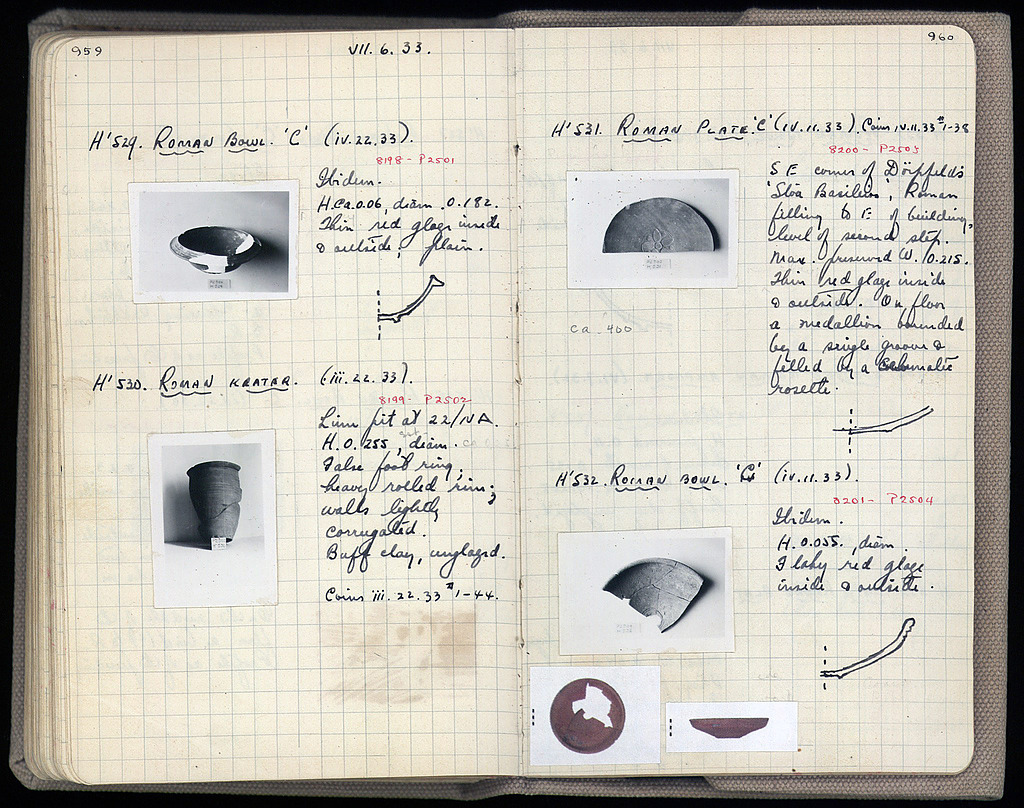 959
VII. 6. 33.
H'529. ROMAN BOWL. 'C' (iv.22.33).
8198 - P2501
Ibidem.
H. ca. 0.06, diam. 0.182.
Thin red glaze inside
& outside, plain.
H'530. ROMAN KRATER. (iii.22.33).
8199 - P2502
Lime pit at 22/ΝΔ.
H. 0.255, diam.
False foot ring;
heavy rolled rim;
walls lightly
corrugated.
Buff clay, unglazed.
Coins iii.22.33 #1-44.
960
H'531. ROMAN PLATE 'C' (iv.11.33). Coins iv.11.33 #1-38
8200 - P2503
S E corner of Dörpfeld's
'Stoa Basileios', Roman
filling to E of building,
level of second step.
Max. preserved W. 0.215.
Thin red glaze inside
& outside. On floor
a medallion bounded
by a single groove &
filled by a schematic
rosette.
ca. 400
H'532. ROMAN BOWL. 'C' (iv.11.33).
8201 - P2504
Ibidem.
H. 0.055, diam
Flaky red glaze
inside & outside.